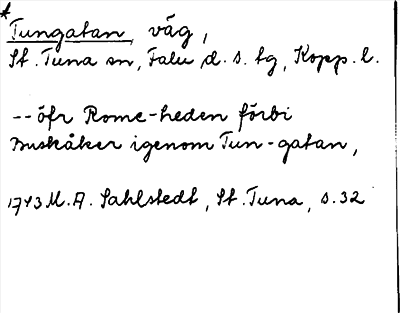 Tungatan, väg,
St. Tuna sn, Falu d. s. tg, Kopp. l.
-- öfr Rome-heden förbi
Buskåker igenom Tun-gatan,
1743 M. A. Sahlstedt, St. Tuna, s. 32